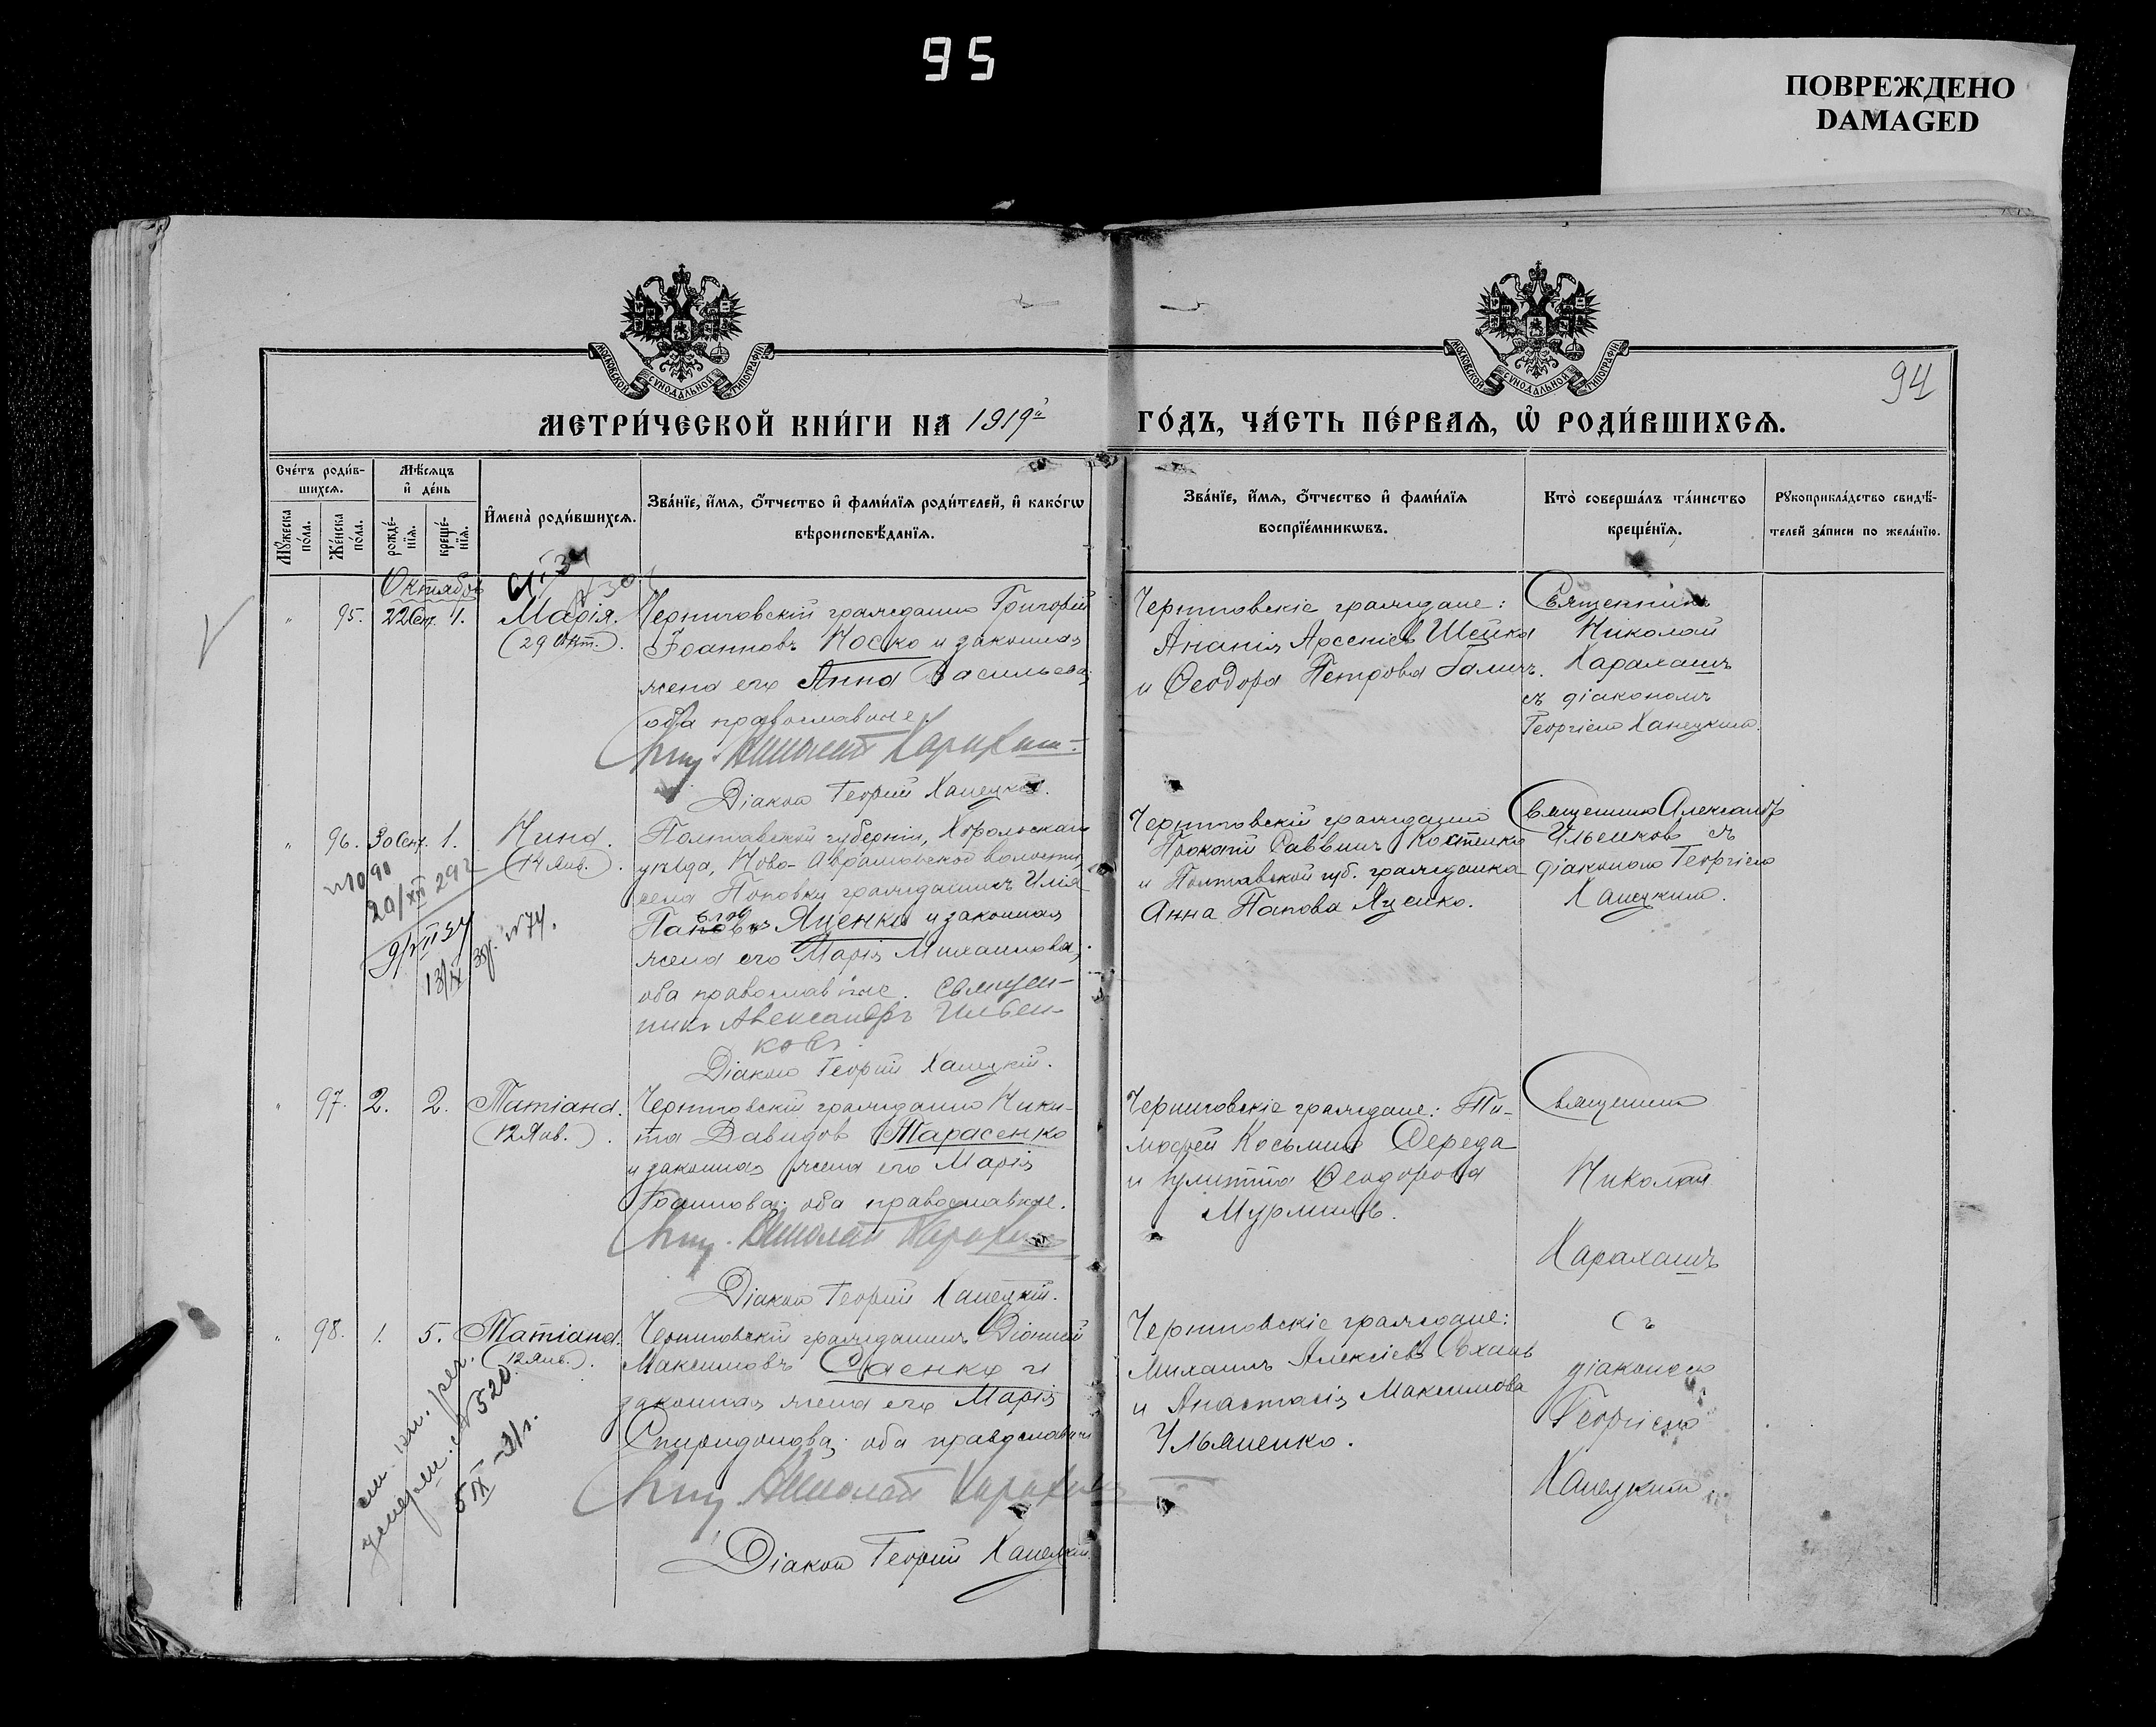 95
ПОВРЕЖДЕНО
DAMAGED
МОСКОВСКОЙ СѴНОДАЛЬНОЙ ТИПОГРАФІИ
МОСКОВСКОЙ СѴНОДАЛЬНОЙ ТИПОГРАФІИ
94
МЕТРИ́ЧЕСКОЙ КНИ́ГИ НА 1919й
ГО́ДЪ, ЧА́СТЬ ПЕ́РВАѦ, Ѡ҆ РОДИ́ВШИХСѦ.
Сче́тъ роди́в-
шихсѧ.
Мѣ́сѧцъ
и҆ де́нь
Мꙋ́жеска
по́ла.
Же́нска
по́ла.
рожде́-
нїѧ.
креще́-
нїѧ.
И҆мена̀ роди́вшихсѧ.
Зва́нїе, и҆́мѧ, ѻ҆́тчество и҆ фами́лїѧ роди́телей, и҆ како́гѡ
вѣроисповѣ́данїѧ.
Зва́нїе, и҆́мѧ, ѻ҆́тчество и҆ фами́лїѧ
воспрїе́мникѡвъ.
Кто̀ соверша́лъ та́инство
креще́нїѧ.
Рꙋкоприкла́дство свидѣ́-
телей за́писи по жела́нїю.
Октябрь
95. 22 Сен. 1. Марія.
(29 Окт.).
Черниговскій гражданинъ Григорій
Іоанновъ Носко и законная
жена его Анна Васильева;
оба православные.
Свящ. Николай Карахаш
Діаконъ Георгій Ханецкій.
Черниговскіе граждане:
Ананія Арсеніевъ Шейка
и Ѳеодора Петрова Галичъ.
Священникъ
Николай
Карахашъ
съ діакономъ
Георгіемъ Ханецкимъ.
96. 30 Сент. 1. Нина.
(14 Янв.).
№ 1090
20/XII 29г
9/VII 34
13/IX 39г. № 74.
Полтавской губерніи, Хорольскаго
уѣзда, Ново-Аврамовской волости,
села Поповки гражданинъ Илія
Яценко и законная
жена его Марія Михаилова;
оба православные. Священ-
никъ Александръ Ильен-
ковъ.
Діаконъ Георгій Ханецкій.
Черниговскій гражданинъ
Саввичъ Костенко
и Полтавской губ. гражданка
Анна Яценко.
Священникъ Александръ
Ильенковъ съ
діакономъ Георгіемъ
Ханецкимъ.
97. 2. 2. Татіана.
(12 Янв.).
Черниговскій гражданинъ Ники-
та Давидовъ Тарасенко
и законная жена его Марія
Іоаннова; оба православные.
Свящ. Николай Карахаш
Діаконъ Георгій Ханецкій.
Черниговскіе граждане: Ти-
моѳей Косьминъ Середа
и Ѳеодорова
Священникъ
Николай
Карахашъ
98. 1. 5. Татіана.
(12 Янв.).
см. кн. рег.
№ 520
5 IX
Черниговскій гражданинъ Діонисій
Максимовъ Саенко и
законная жена его Марія
Спиридонова; оба православные
Свящ. Николай Карахаш
Діаконъ Георгій Ханецкій
Черниговскіе граждане:
Михаилъ Алексіевъ
и Анастасія Максимова
Ульяненко.
съ
діакономъ
Георгіемъ
Ханецкимъ